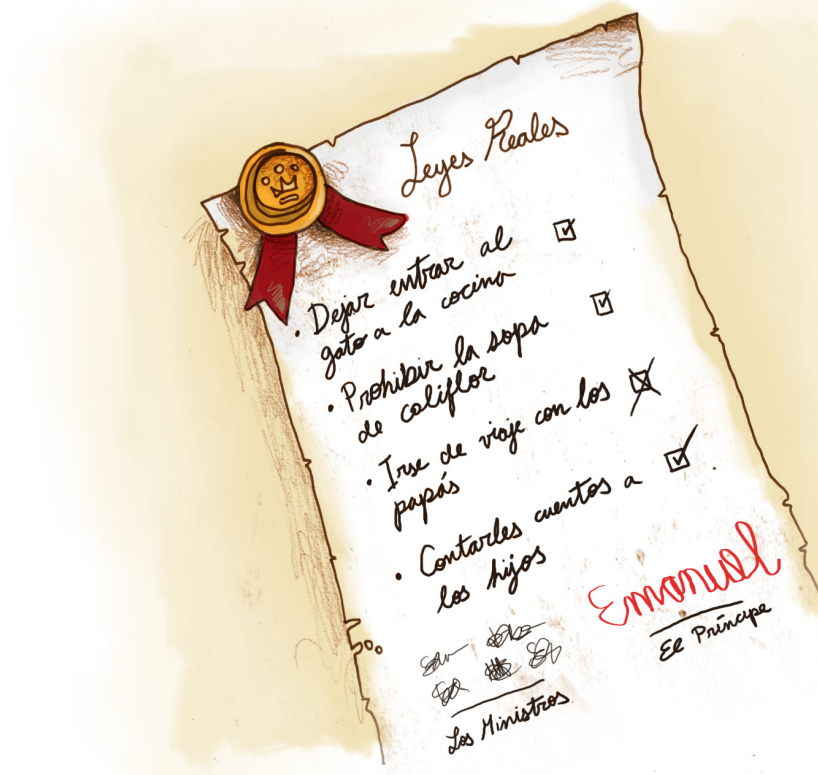 Leyes Reales
• Dejar entrar al
gato a la cocina
• Prohibir la sopa
de coliflor
• Irse de viaje con los
papás
• Contarles cuentos a
los hijos
Emanuel
El Príncipe
Los Ministros